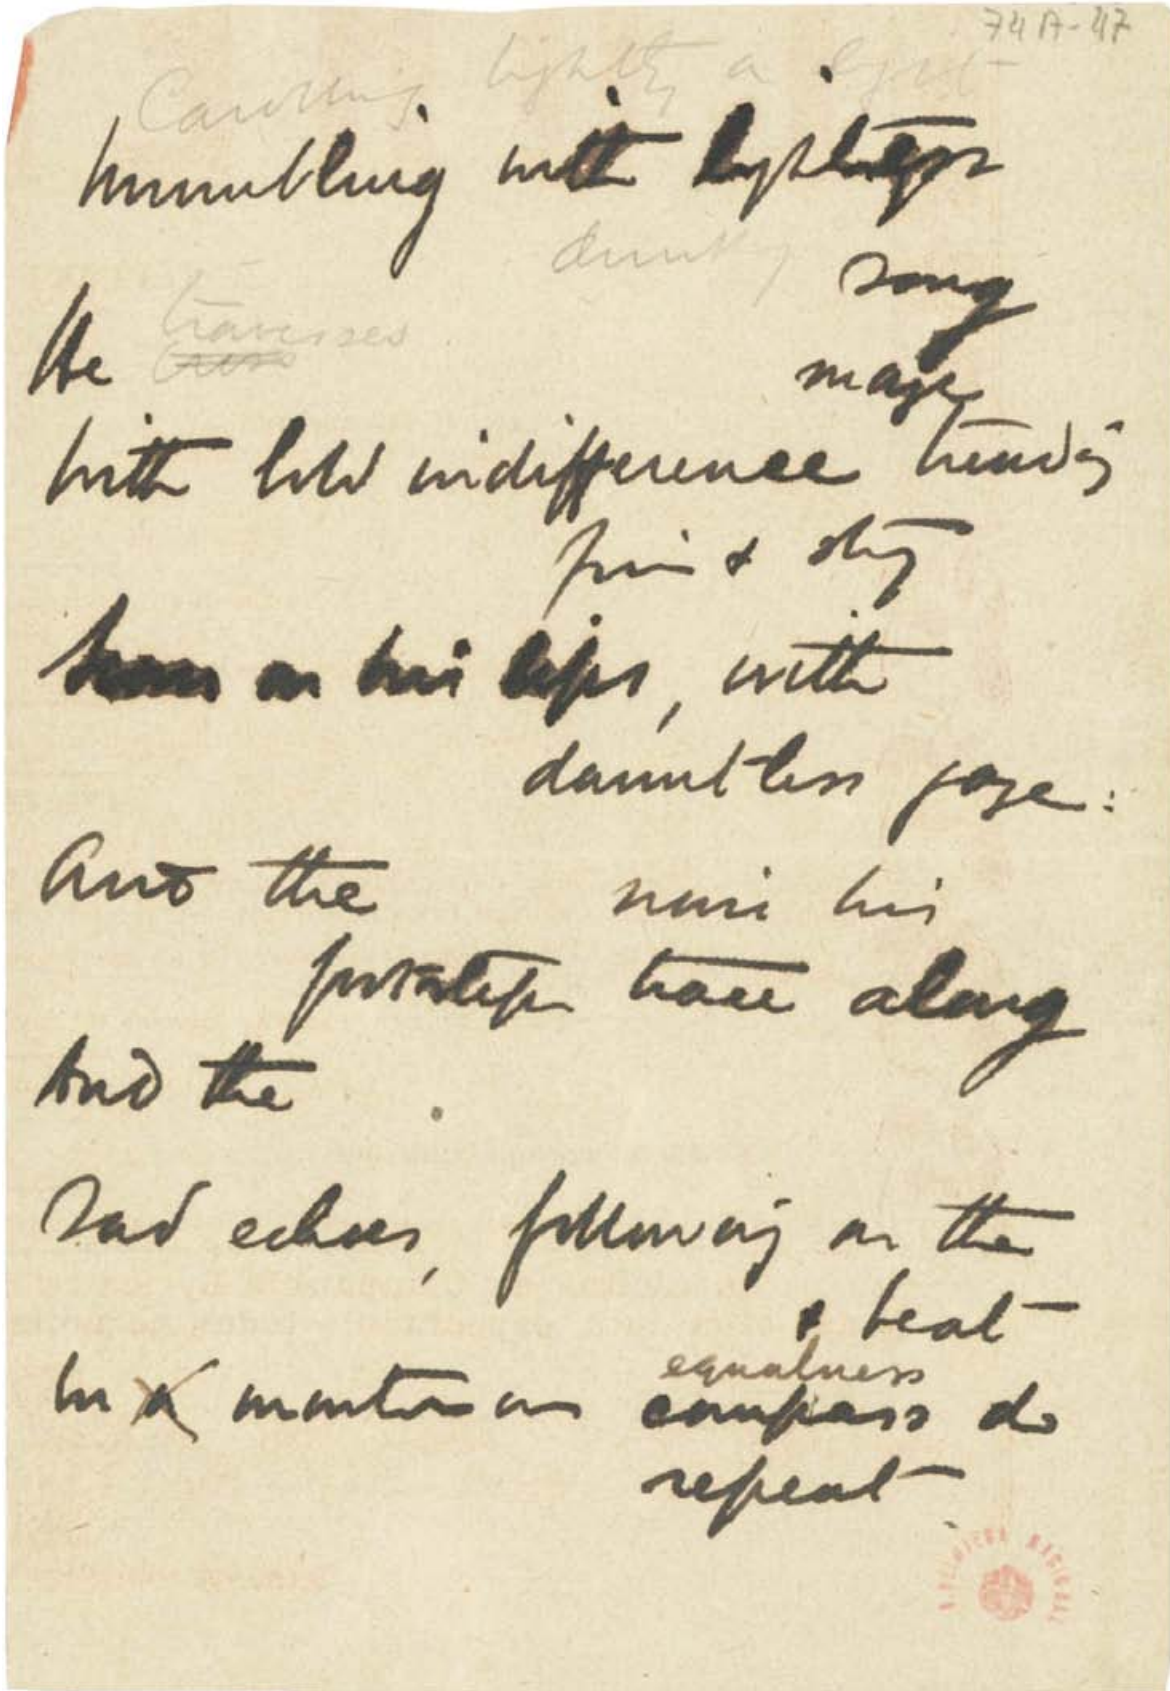 74A-47
Carolling lightly a light
humbling with lightless
song
He traverses
maze
With bold indifference treading
firm & strong
on his lips, with
dauntless gaze:
And the noise his
footsteps trace along
And the
Sad echoes, following on the
& beat
equalness
In a monotonous compass do
repeat
BIBLIOTECA NACIONAL